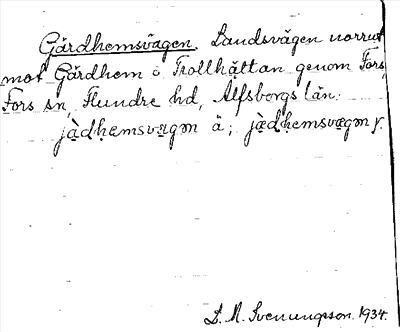 Gärdhemsvägen. Landsvägen norrut
mot Gärdhem o Trollhättan genom Fors
Fors sn, Flundre hd, Älfsborgs län.
jàdhemsvægən ä; jæ̀dhemsvægən y.
L. M. Svenungsson. 1934.